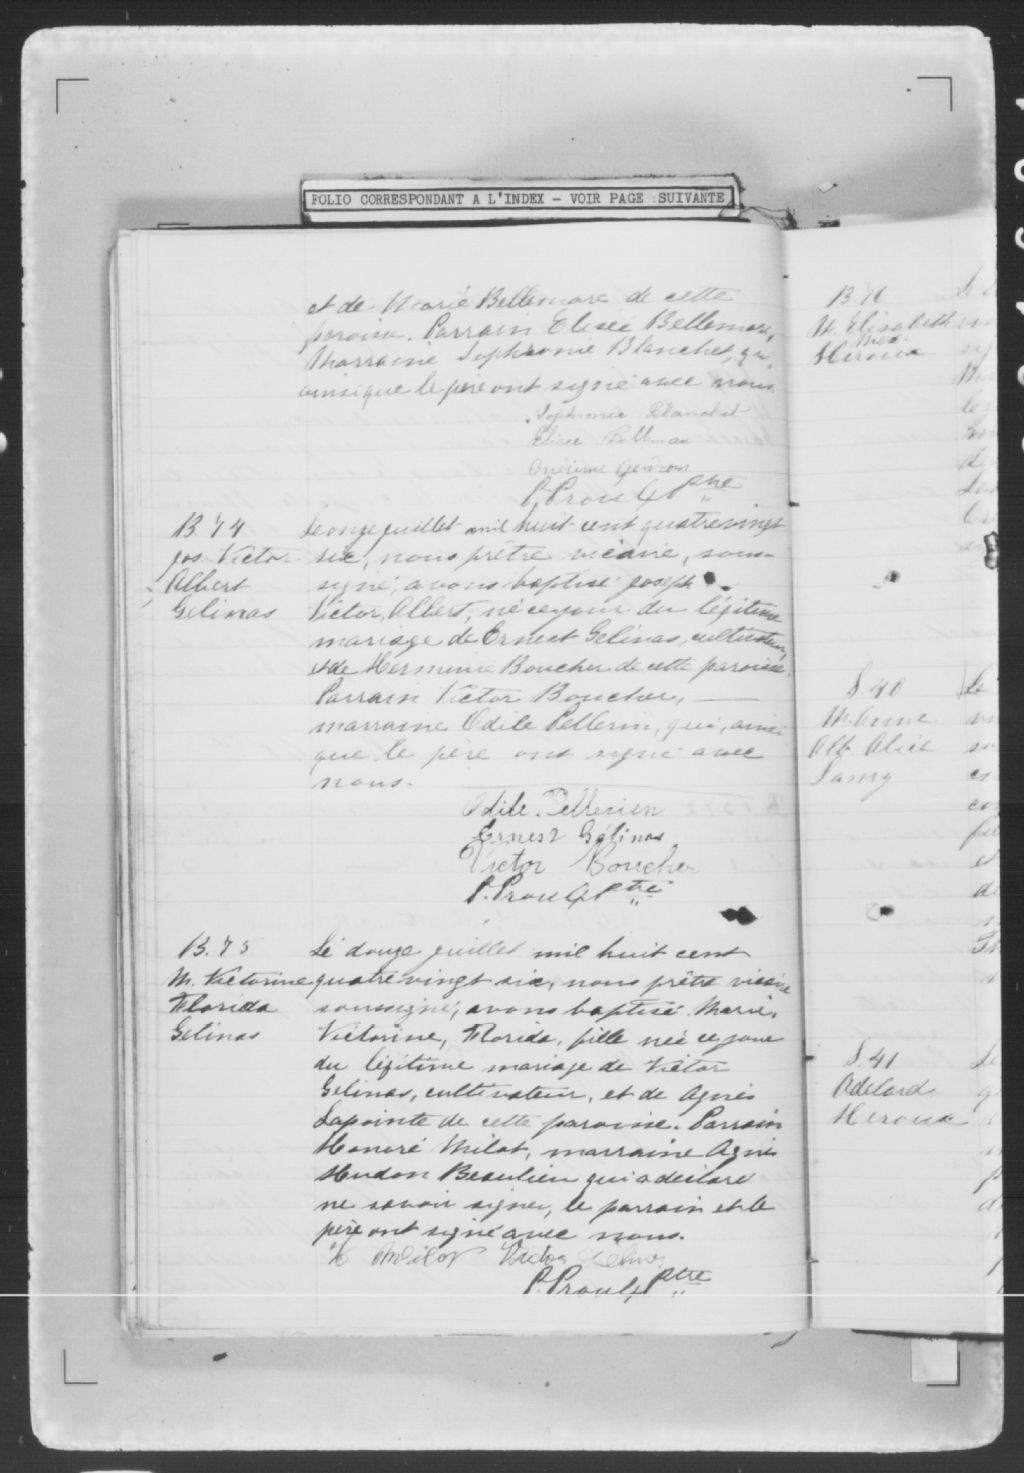 FOLIO CORRESPONDANT A L'INDEX - VOIR PAGE SUIVANTE
et de Marie Bellemare de cette
paroisse. Parrain Elisée Bellemare,
Marraine Sophronie Blanchet, qui
ainsi que le père ont signé avec nous.
Sophronie Blanchet
Elisée Bellemare
Onésime
P. Proulx Ptre
B. 74
Jos. Victor
Albert
Gelinas
Le onze juillet mil huit cent quatrevingt
six, nous prêtre vicaire, sous-
signé, avons baptisé Joseph
Victor, Albert, né ce jour du légitime
mariage de Ernest Gelinas, cultivateur,
& de Herminie Boucher de cette paroisse.
Parrain Victor Boucher,
marraine Odile Pellerin, qui, ainsi
que le père ont signé avec
nous.
Odile Pellerien
Ernest Gélinas
Victor Boucher
P. Proulx Ptre
B. 75
M. Victorine
Florida
Gelinas
Le douze juillet mil huit cent
quatre vingt six, nous prêtre vicaire
soussigné, avons baptisé Marie,
Victorine, Florida, fille née ce jour
du légitime mariage de Victor
Gelinas, cultivateur, et de Agnès
Lapointe de cette paroisse. Parrain
Honoré Milot, marraine Agnès
Hudon Beaulieu qui a déclaré
ne savoir signer, le parrain et le
père ont signé avec nous.
H Milot Victor Gelinas
P. Proulx Ptre
B. 76
M. Elisabeth
Heroux
S. 40
M. Anne
Alb. Alice
Lamy
S. 41
Adelard
Heroux